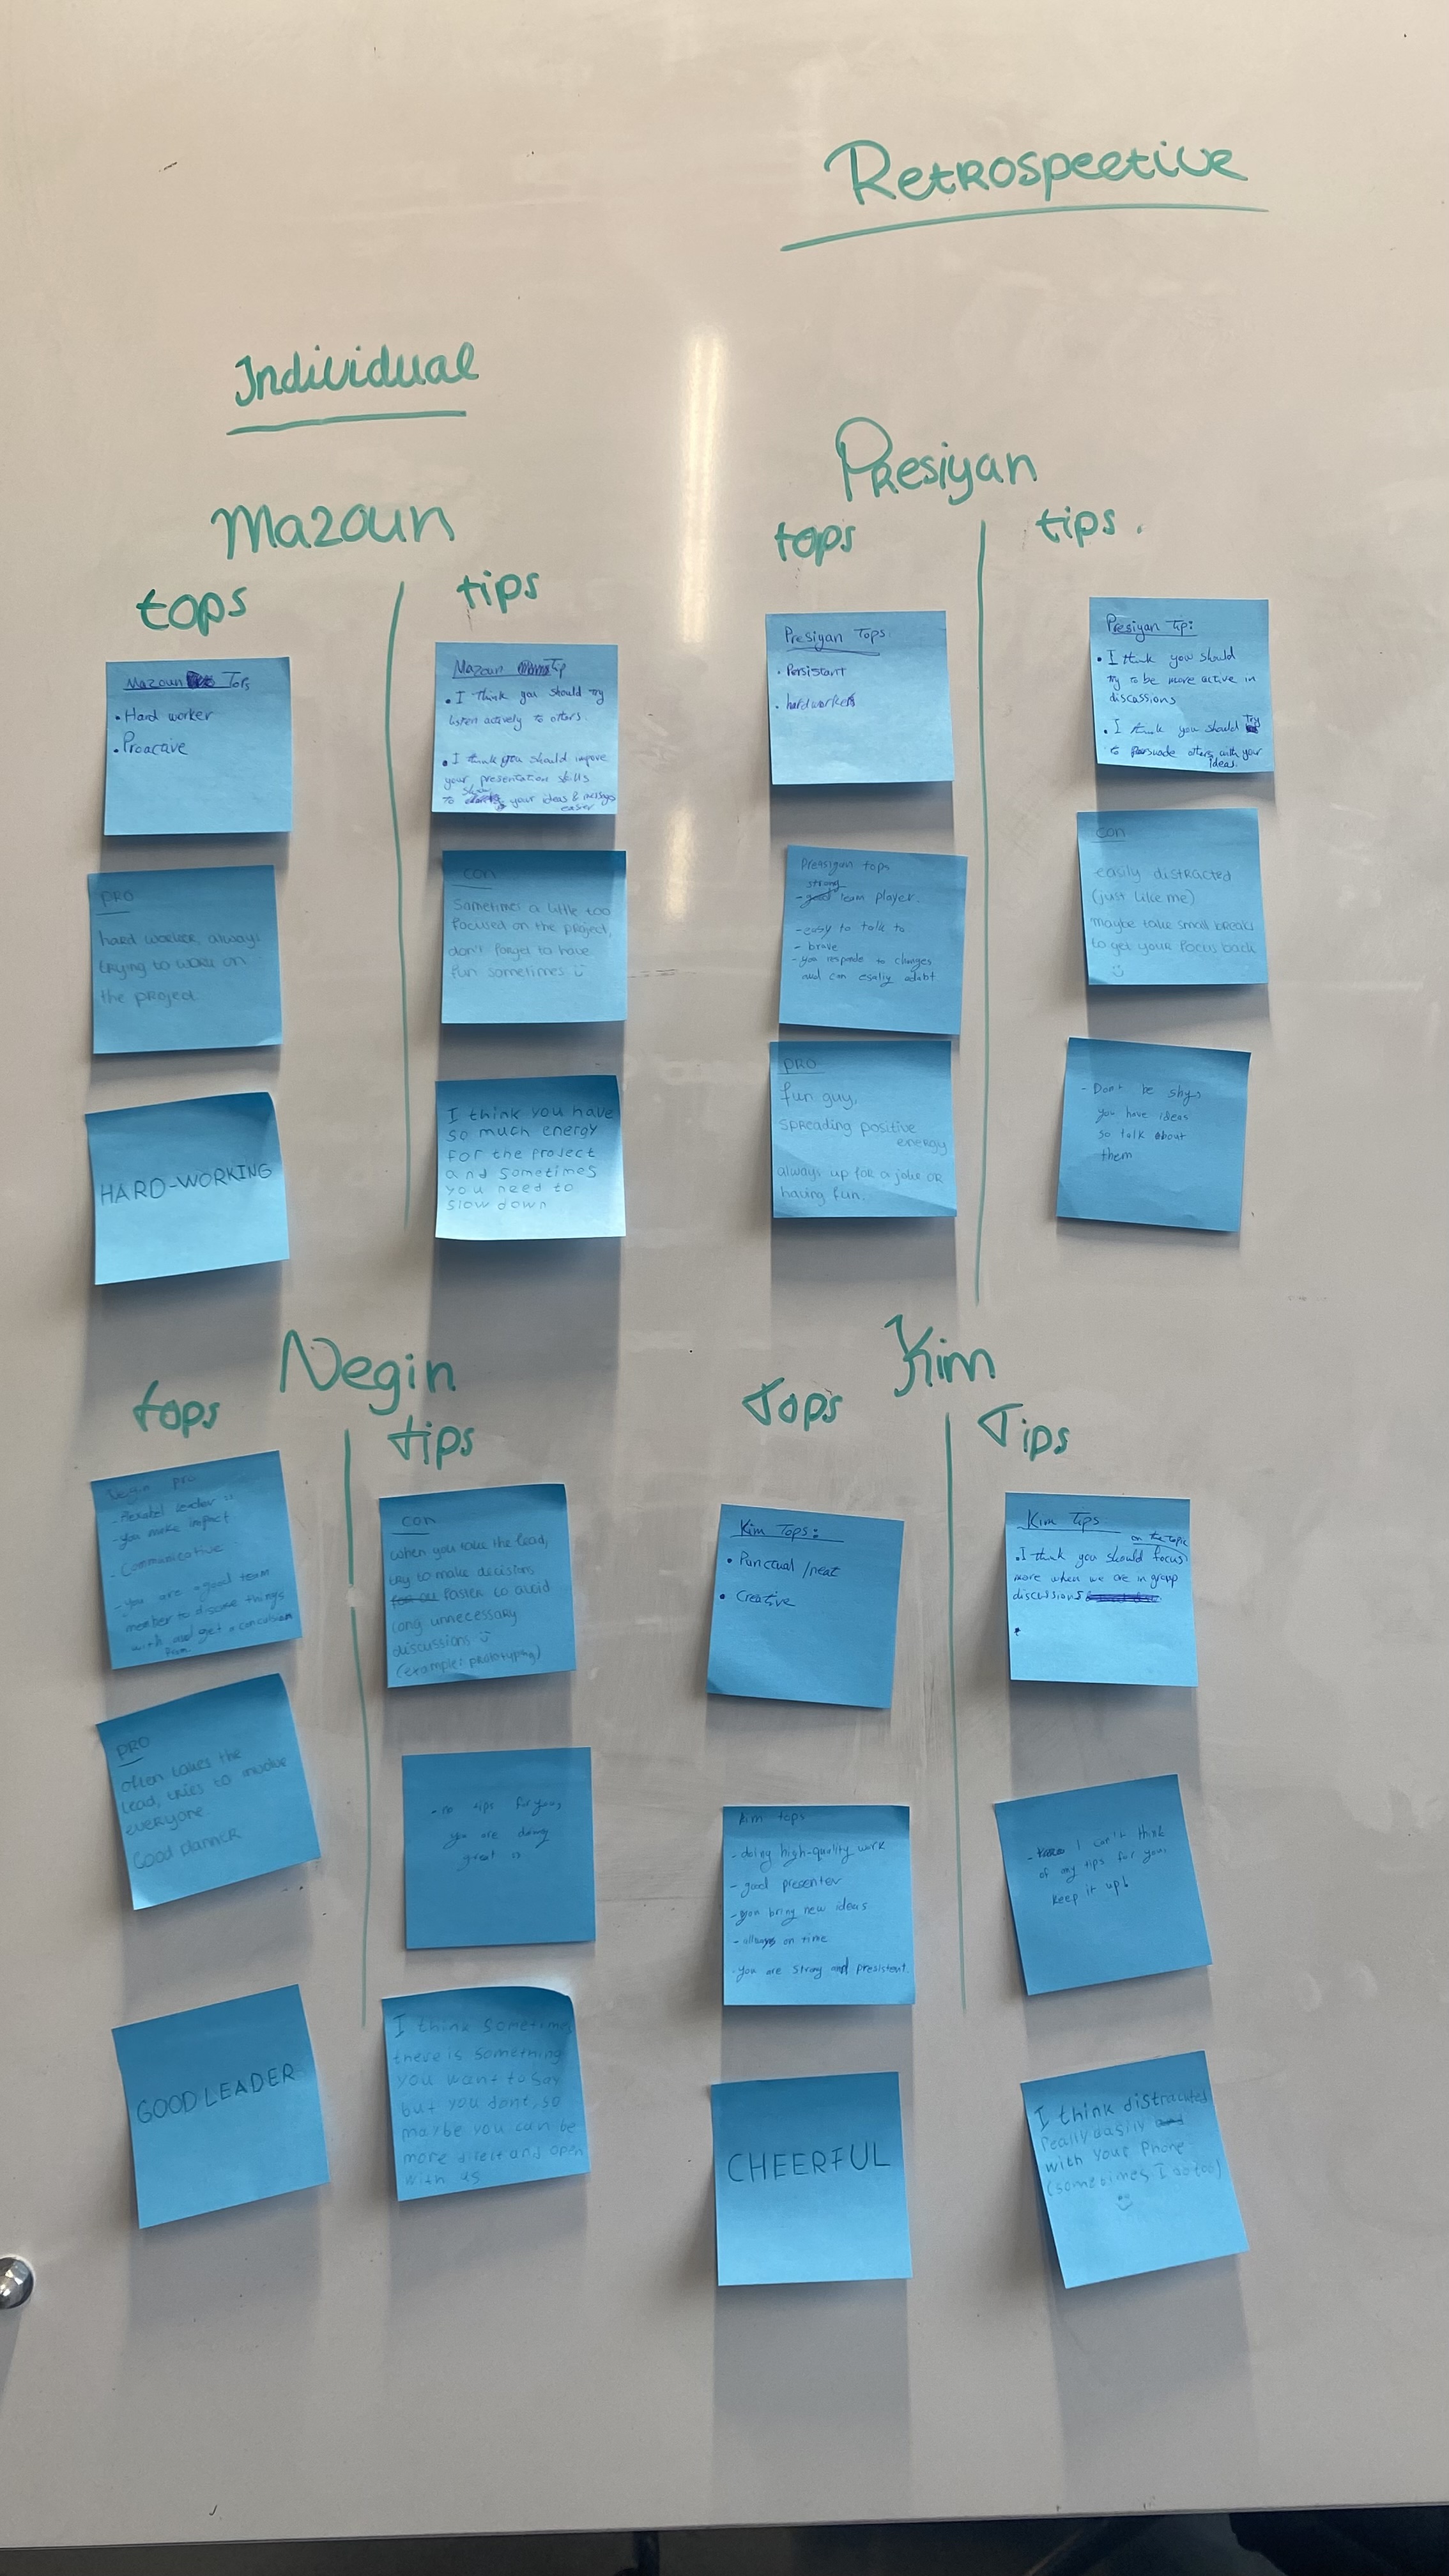 Retrospective
Individual
Mazoun
tops
tips
Mazoun Tops
• Hard worker
• Proactive
PRO
hard worker, always
trying to work on
the project.
HARD-WORKING
Mazoun Tip
• I think you should try
listen actively to others.
• I think you should improve
your presentation skills
to show your ideas & messages
easier
con
Sometimes a little too
focused on the project,
don't forget to have
fun sometimes :)
I think you have
so much energy
for the project
and sometimes
you need to
slow down
Presiyan
tops
tips.
Presiyan Tops
• Persistant
• hardworker
Preasiyan tops
strong
- good team player.
- easy to talk to
- brave
- you responde to changes
and can esaliy adabt
PRO
fun guy,
spreading positive
energy
always up for a joke or
having fun.
Presiyan Tip:
• I think you should
try to be more active in
discussions
• I think you should try
to persuade others with your
ideas.
con
easily distracted
(just like me)
maybe take small breaks
to get your focus back
:)
- Don't be shy,
you have ideas
so talk about
them
Negin
tops
tips
Negin pro
- flexabel leader
- you make impact
- Communicative
- you are a good team
member to discuse things
with and get a conculsion
from
PRO
often takes the
lead, tries to involve
everyone.
Good planner
GOOD LEADER
con
when you take the lead,
try to make decisions
faster to avoid
long unnecessary
discussions :)
(example: prototyping)
- no tips for you,
you are doing
great
I think sometimes
there is something
you want to say
but you dont, so
maybe you can be
more direct and open
with us
Kim
Tops
Tips
Kim Tops:
• Punctual /neat
• Creative
Kim tops
- doing high-quality work
- good presenter
- you bring new ideas
- allways on time
- you are strong and presistent.
CHEERFUL
Kim Tips
on the topic
• I think you should focus
more when we are in group
discussions
- I can't think
of my tips for you,
keep it up!
I think distracted
really easily
with your phone
(sometimes I do too)
:)